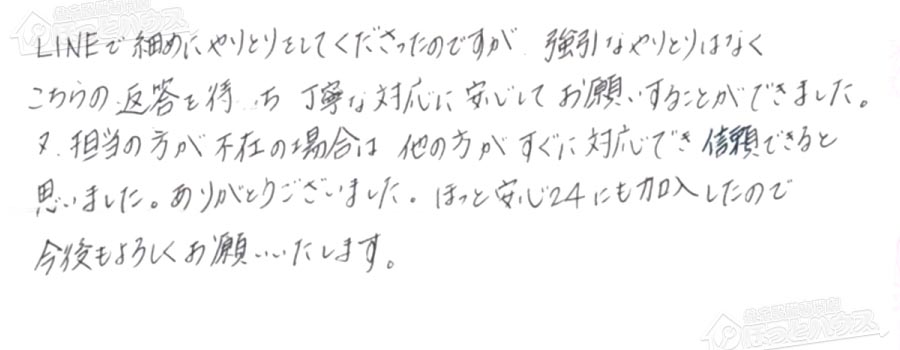 LINEで細めにやりとりをしてくださったのですが 強引なやりとりはなく
こちらの返答を待ち 丁寧な対応に安心してお願いすることができました。
又、担当の方が不在の場合は 他の方がすぐに対応でき信頼できると
思いました。ありがとうございました。ほっと安心24にも加入したので
今後もよろしくお願いいたします。
ほっとハウス